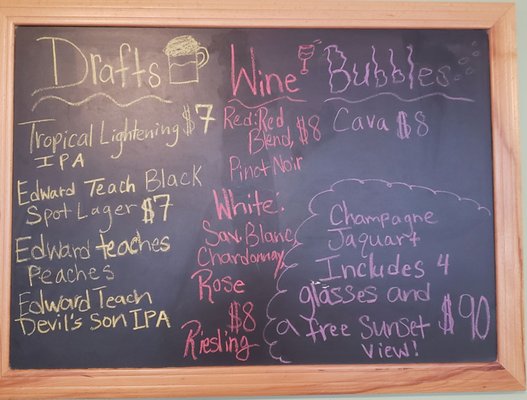 Drafts
Tropical Lightening $7
IPA
Edward Teach Black
Spot Lager $7
Edward teaches
Peaches
Edward Teach
Devil's Son IPA
Wine
Red: Red
Blend, $8
Pinot Noir
White:
Sav. Blanc
Chardonnay
Rose
$8
Riesling
Bubbles
Cava $8
Champagne
Jaquart
Includes 4
glasses and
a free Sunset $90
view!